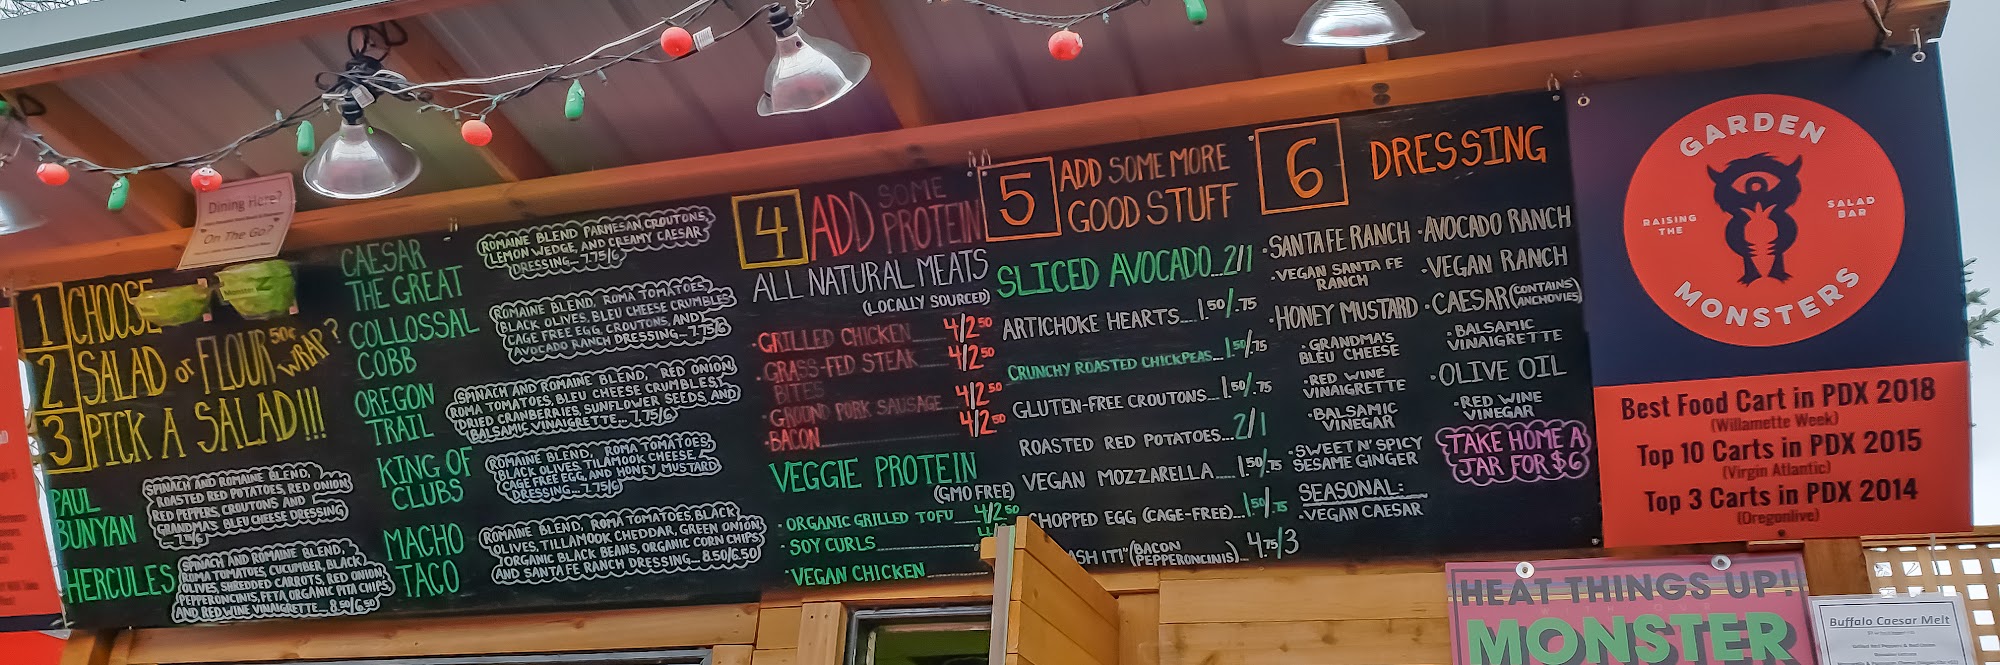 Dining Here?
On The Go?
1 CHOOSE
2 SALAD or FLOUR 50¢ WRAP?
3 PICK A SALAD!!!
PAUL BUNYAN
SPINACH AND ROMAINE BLEND,
ROASTED RED POTATOES, RED ONION,
RED PEPPERS, CROUTONS AND
GRANDMA'S BLEU CHEESE DRESSING
HERCULES
ROMAINE BLEND,
ROMA TOMATOES, CUCUMBER, BLACK
OLIVES, SHREDDED CARROTS, RED ONION,
PEPPERONCINIS, FETA, ORGANIC PITA CHIPS,
AND RED WINE VINAIGRETTE... 8.50/6.50
CAESAR
THE GREAT
ROMAINE BLEND PARMESAN, CROUTONS,
LEMON WEDGE, AND CREAMY CAESAR
DRESSING... 7.75/6
COLLOSSAL
COBB
ROMAINE BLEND, ROMA TOMATOES,
BLACK OLIVES, BLEU CHEESE CRUMBLES,
CAGE FREE EGG, CROUTONS, AND
AVOCADO RANCH DRESSING... 7.75/6
OREGON
TRAIL
SPINACH AND ROMAINE BLEND, RED ONION,
ROMA TOMATOES, BLEU CHEESE CRUMBLES,
DRIED CRANBERRIES, SUNFLOWER SEEDS, AND
BALSAMIC VINAIGRETTE... 7.75/6
KING OF
CLUBS
ROMAINE BLEND, ROMA TOMATOES,
BLACK OLIVES, TILAMOOK CHEESE,
CAGE FREE EGG, AND HONEY MUSTARD
DRESSING... 7.75/6
MACHO
TACO
ROMAINE BLEND, ROMA TOMATOES, BLACK
OLIVES, TILLAMOOK CHEDDAR, GREEN ONION,
ORGANIC BLACK BEANS, ORGANIC CORN CHIPS,
AND SANTA FE RANCH DRESSING... 8.50/6.50
4 ADD SOME PROTEIN
ALL NATURAL MEATS
(LOCALLY SOURCED)
• GRILLED CHICKEN 4/2.50
• GRASS-FED STEAK BITES 4/2.50
• GROUND PORK SAUSAGE 4/2.50
• BACON 4/2.50
VEGGIE PROTEIN
(GMO FREE)
• ORGANIC GRILLED TOFU 4/2.50
• SOY CURLS
• VEGAN CHICKEN
5 ADD SOME MORE
GOOD STUFF
SLICED AVOCADO... 2/1
ARTICHOKE HEARTS... 1.50/.75
CRUNCHY ROASTED CHICKPEAS... 1.50/.75
GLUTEN-FREE CROUTONS... 1.50/.75
ROASTED RED POTATOES... 2/1
VEGAN MOZZARELLA... 1.50/.75
CHOPPED EGG (CAGE-FREE)... 1.50/.75
ASH IT!" (BACON PEPPERONCINIS)... 4.75/3
6 DRESSING
• SANTA FE RANCH
• VEGAN SANTA FE
RANCH
• HONEY MUSTARD
• GRANDMA'S
BLEU CHEESE
• RED WINE
VINAIGRETTE
• BALSAMIC
VINEGAR
• SWEET N' SPICY
SESAME GINGER
SEASONAL:
• VEGAN CAESAR
• AVOCADO RANCH
• VEGAN RANCH
• CAESAR (CONTAINS ANCHOVIES)
• BALSAMIC
VINAIGRETTE
• OLIVE OIL
• RED WINE
VINEGAR
TAKE HOME A
JAR FOR $6
GARDEN
RAISING THE
SALAD BAR
MONSTERS
Best Food Cart in PDX 2018
(Willamette Week)
Top 10 Carts in PDX 2015
(Virgin Atlantic)
Top 3 Carts in PDX 2014
(Oregonlive)
HEAT THINGS UP!
WITH OUR
MONSTER
Buffalo Caesar Melt